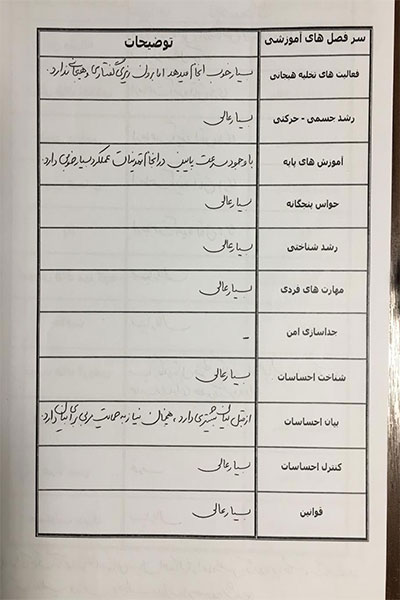 سر فصل های آموزشی توضیحات
فعالیت های تخلیه هیجانی بسیار خوب انجام میدهد اما برون ریزی گفتاری و هیجانی ندارد.
رشد جسمی - حرکتی بسیار عالی
آموزش های پایه با وجود سرعت پایین در انجام تمرینات عملکرد بسیار خوبی دارد.
حواس پنجگانه بسیار عالی
رشد شناختی بسیار عالی
مهارت های فردی بسیار عالی
جداسازی امن -
شناخت احساسات بسیار عالی
بیان احساسات از قبل بیان بیشتری دارد، همچنان نیاز به حمایت مربی برای بیان دارد.
کنترل احساسات بسیار عالی
قوانین بسیار عالی